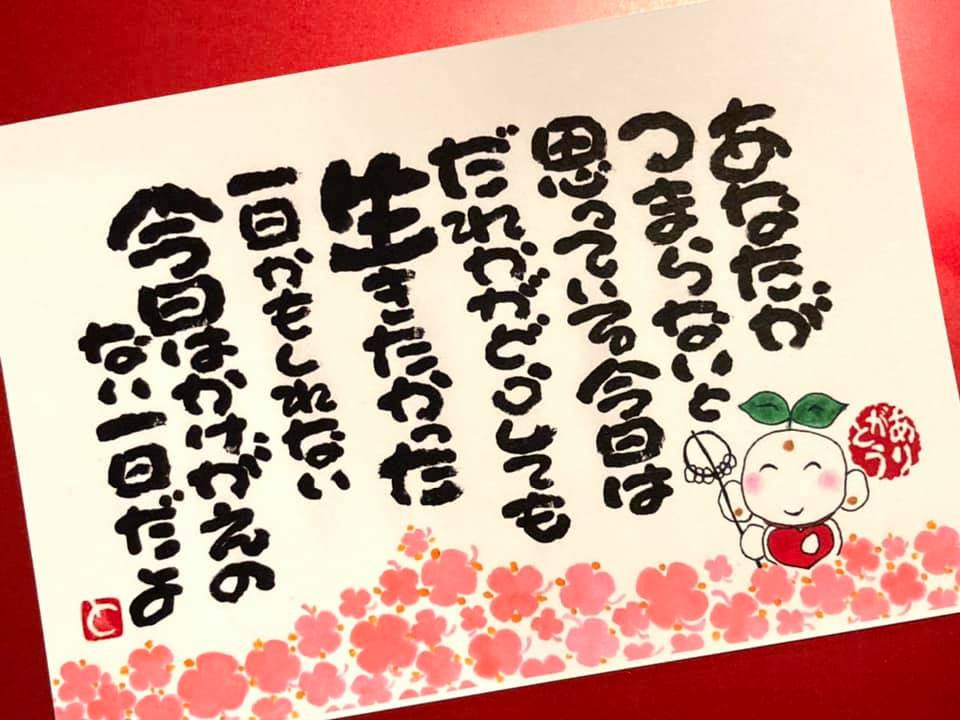 あなたが
つまらないと
思っている今日は
だれかがどうしても
生きたかった
一日かもしれない
今日はかけがえの
ない一日だよ
ありがとう
と